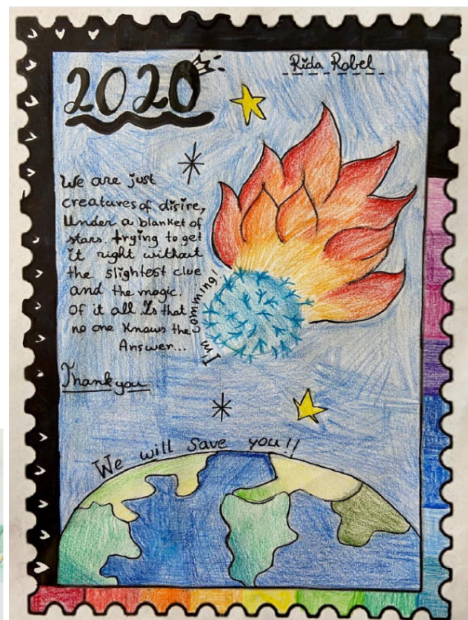 2020
Rida Robel
We are just
creatures of disire,
Under a blanket of
stars. trying to get
it right without
the slightest clue
and the magic.
Of it all is that
no one knows the
Answer...
I'm comming!
Thank you
We will save you!!